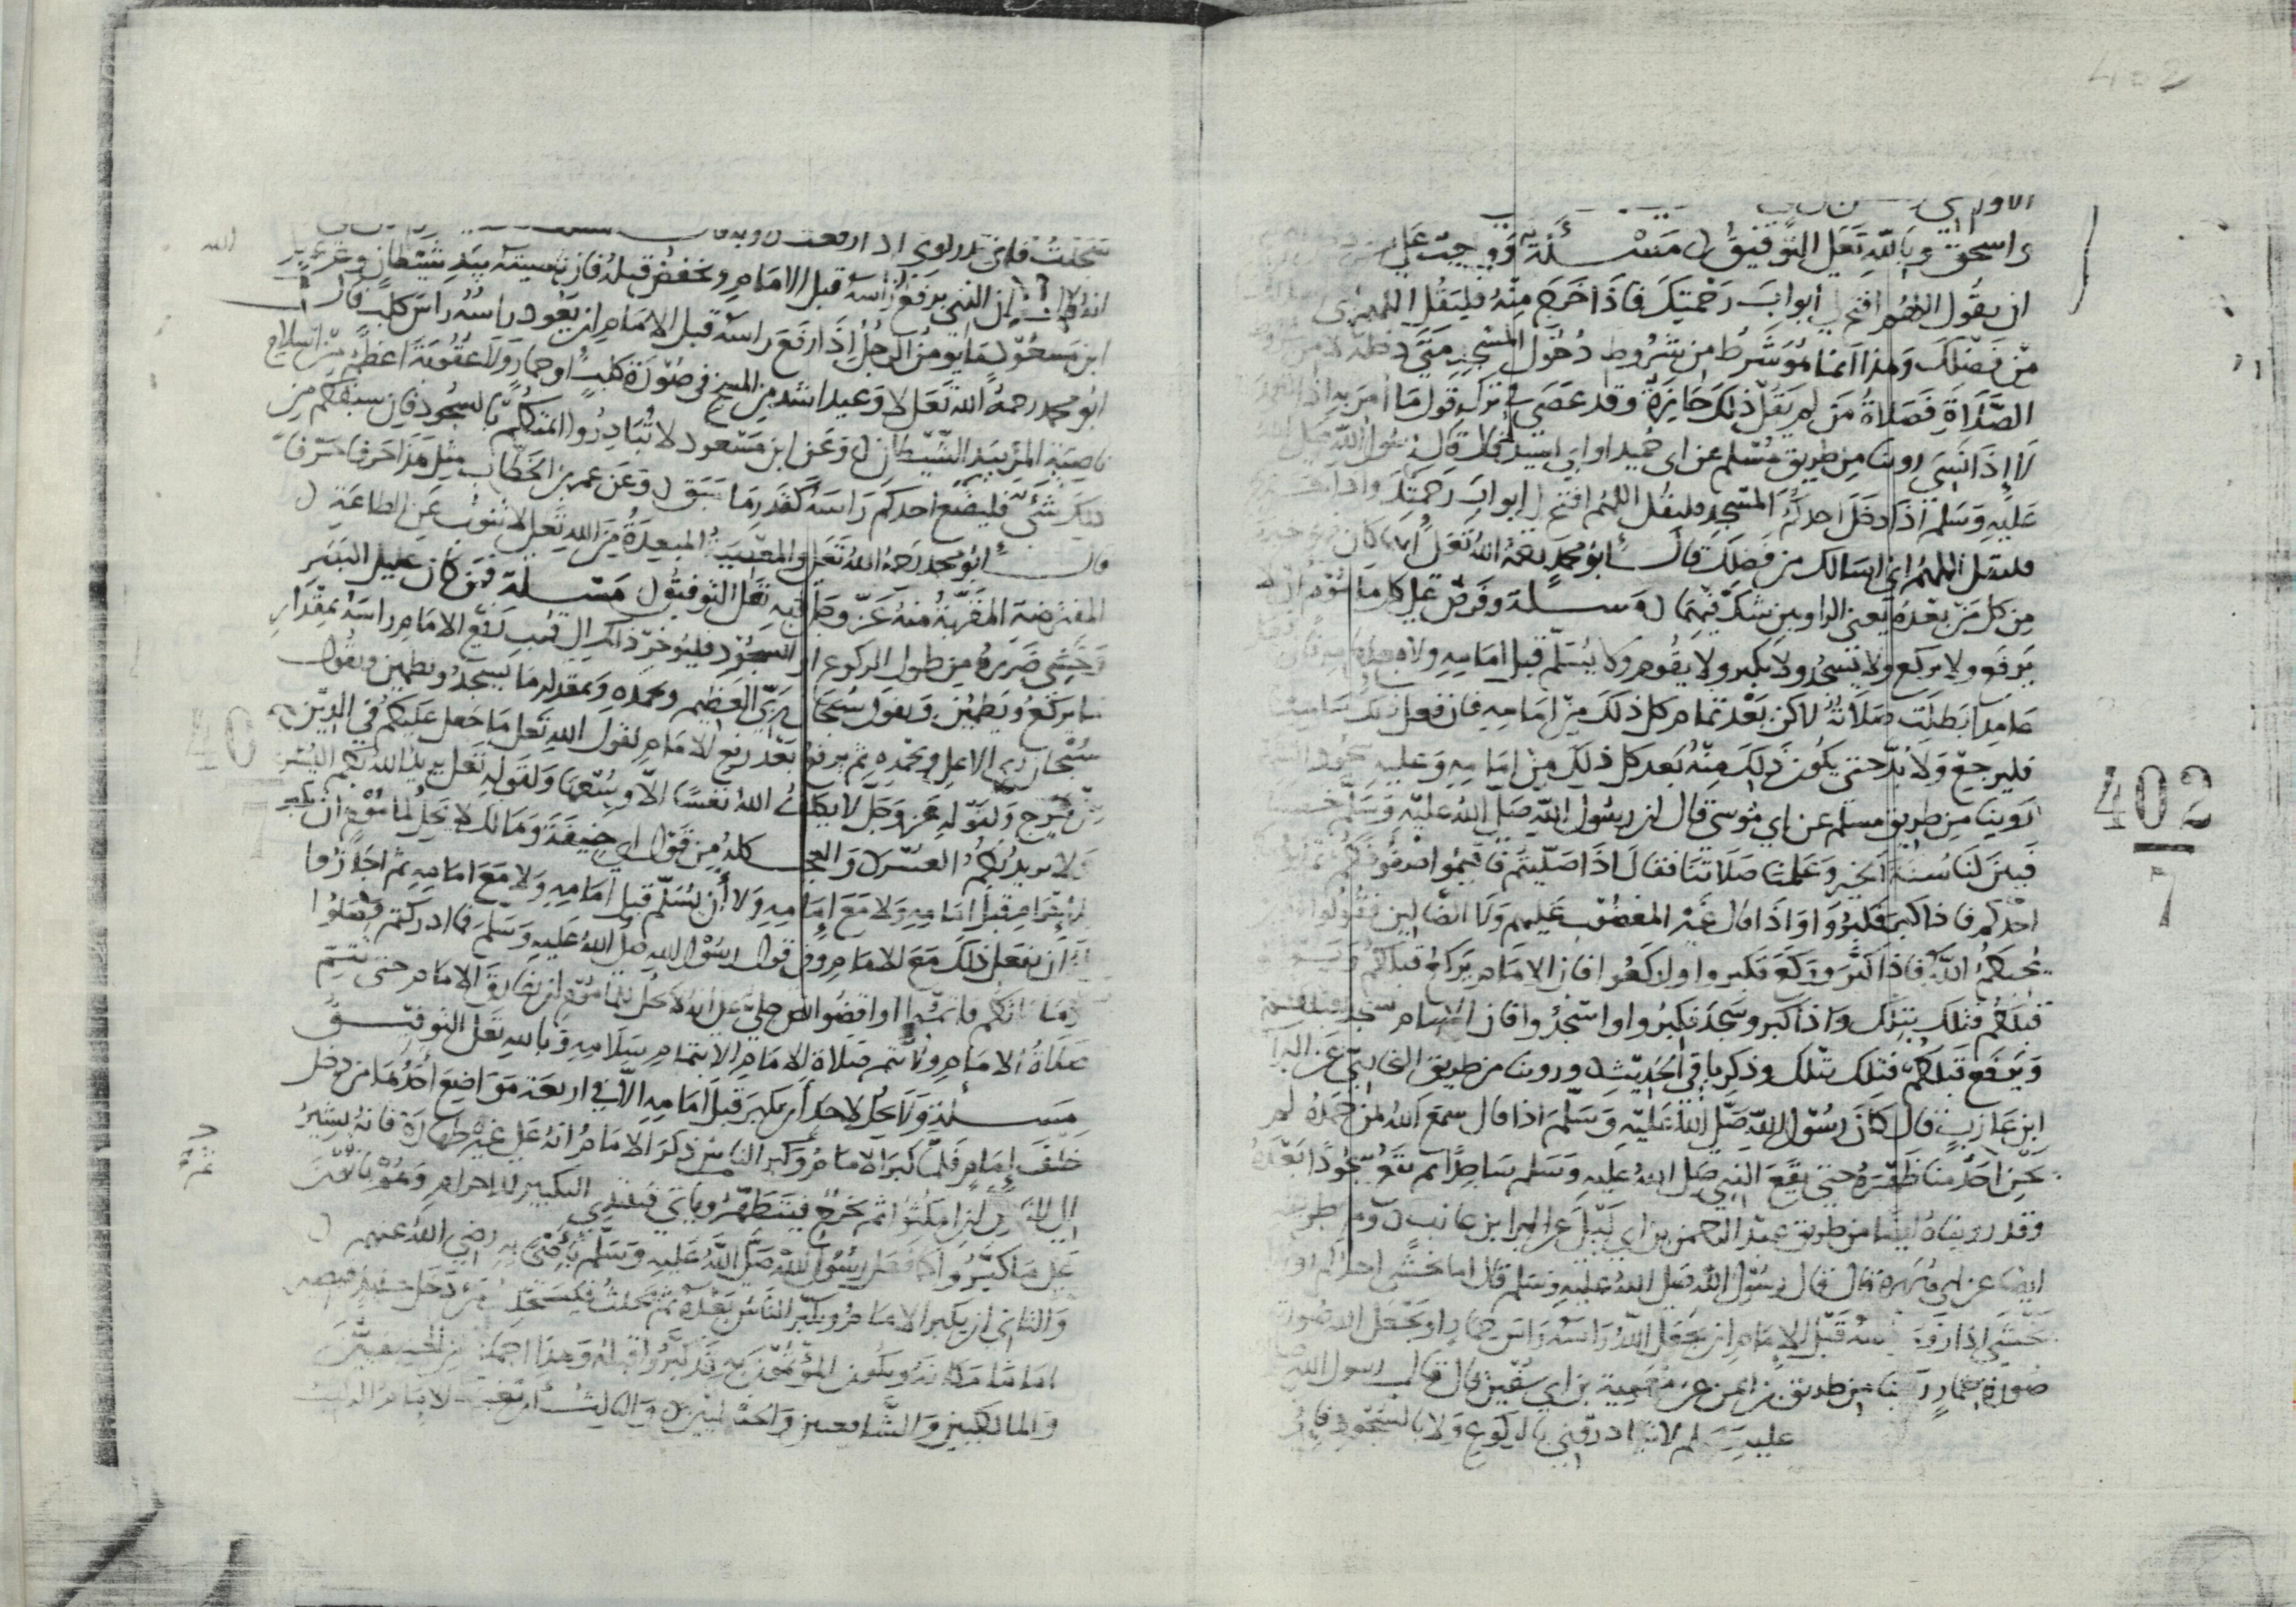 402
واسحق وبالله تعلى التوفيق مسئلة وواجب على
ان يقول اللهم افتح لي ابواب رحمتك فاذا خرج منه فليقل اللهم
من فضلك وهذا انما هو شرط من شروط دخول المسجد متى دخله لا من
الصلاة فصلاة من لم يقل ذلك جائزة وقد عصى في تركه قول ما امر به
روينا من طريق مسلم عن ابي حميد او ابي اسيد قال قال رسول الله صلى الله
عليه وسلم اذا دخل احدكم المسجد فليقل اللهم افتح لي ابواب رحمتك واذا خرج
فليقل اللهم اني اسالك من فضلك قال ابو محمد رحمه الله تعلى
من كل من بعده يعني الراويين شك فيهما مسئلة وفرض على كل ماموم ان لا
يرفع ولا يركع ولا يسجد ولا يكبر ولا يقوم ولا يسلم قبل امامه ولا معه
عامدا بطلت صلاته لاكن بعد تمام كل ذلك من امامه فان فعل ذلك ساهيا
فليرجع ولا بد حتى يكون ذلك منه بعد كل ذلك من امامه وعليه سجود السهو
روينا من طريق مسلم عن ابي موسى قال ان رسول الله صلى الله عليه وسلم خطبنا
فبين لنا سنتنا وعلمنا صلاتنا فقال اذا صليتم فاقيموا صفوفكم ثم ليؤمكم
احدكم فاذا كبر فكبروا واذا قال غير المغضوب عليهم ولا الضالين فقولوا امين
يجبكم الله فاذا كبر وركع فكبروا واركعوا فان الامام يركع قبلكم ويرفع
قبلكم فتلك بتلك واذا كبر وسجد فكبروا واسجدوا فان الامام يسجد قبلكم
ويرفع قبلكم فتلك بتلك وذكر باقي الحديث وروينا من طريق البخاري عن البرا
ابن عازب قال كان رسول الله صلى الله عليه وسلم اذا قال سمع الله لمن حمده لم
يحن احد منا ظهره حتى يقع النبي صلى الله عليه وسلم ساجدا ثم نقع سجودا بعده
وقد رويناه ايضا من طريق عبد الرحمن بن ابي ليلى عن البرا بن عازب ومن طريق
ايضا عن ابي هريرة قال قال رسول الله صلى الله عليه وسلم قال اما يخشى احدكم او
يخشى اذا رفع راسه قبل الامام ان يجعل الله راسه راس حمار او يجعل الله صورته
صورة حمار روينا من طريق عن معوية بن ابي سفين قال قال رسول الله
عليه وسلم لا تبادروني بالركوع ولا بالسجود
402
7
ان الذي يرفع راسه قبل الامام ويخفض قبله فان ناصيته بيد شيطان وعن
ابن مسعود ما يؤمن الرجل اذا رفع راسه قبل الامام ان يعود راسه راس كلب قال
ابو محمد رحمه الله تعلى لا وعيد اشد من المسخ في صورة كلب او حمار ولا عقوبة اعظم من اسلام
ناصية المرء بيد الشيطان وعن ابن مسعود لا تبادروا ائمتكم بالسجود فان سبقكم من
ذلك شي فليضع احدكم راسه كقدر ما سبق وعن عمر بن الخطاب مثل هذا حرفا حرفا
قال ابو محمد رحمه الله تعلى والمعصية المبعدة من الله تعلى لا تنوب عن الطاعة
المفترضة المقربة منه عز وجل وبالله تعلى التوفيق مسئلة فمن كان عليل البصر
وخشي ضررا من طول الركوع او السجود فليؤخر ذلك الى قرب رفع الامام راسه بمقدار
ما يركع ويطمئن ويقول سبحان ربي العظيم وبحمده وبمقدار ما يسجد ويطمئن ويقول
سبحان ربي الاعلى وبحمده ثم يرفع بعد رفع الامام لقول الله تعلى ما جعل عليكم في الدين
من حرج ولقوله عز وجل لا يكلف الله نفسا الا وسعها ولقوله تعلى يريد الله بكم اليسر
ولا يريد بكم العسر والعجب كله من قول ابي حنيفة ومالك لا يحل لماموم ان يكبر
للاحرام قبل امامه ولا مع امامه ولا ان يسلم قبل امامه ولا مع امامه ثم اجازوا
له ان يفعل ذلك مع الامام وفي قول رسول الله صلى الله عليه وسلم فما ادركتم فصلوا
وما فاتكم فاتموا او اقضوا نص جلي على انه لا يحل لماموم ان يفارق الامام حتى تتم
صلاة الامام ولا تتم صلاة الامام الا بتمام سلامه وبالله تعلى التوفيق
مسئلة ولا يحل لاحد ان يكبر قبل امامه الا في اربعة مواضع احدهما من دخل
خلف امام فلما كبر الامام وكبر الناس ذكر الامام انه على غير طهارة فانه يشير
الى الناس ان امكثوا ثم يخرج فيتطهر وياتي فيبتدي التكبير للاحرام وهم باقون
على ما كبروا كما فعل رسول الله صلى الله عليه وسلم باصحابه رضي الله عنهم
والثاني ان يكبر الامام ويكبر الناس بعده ثم يحدث فيستخلف من دخل حينئذ فيصير
اماما مكانه ويكون المؤتمون به قد كبروا قبله وهذا اجماع من الحنفيين
والمالكيين والشافعيين والحنبليين والثالث ان يغيب الامام الراتب